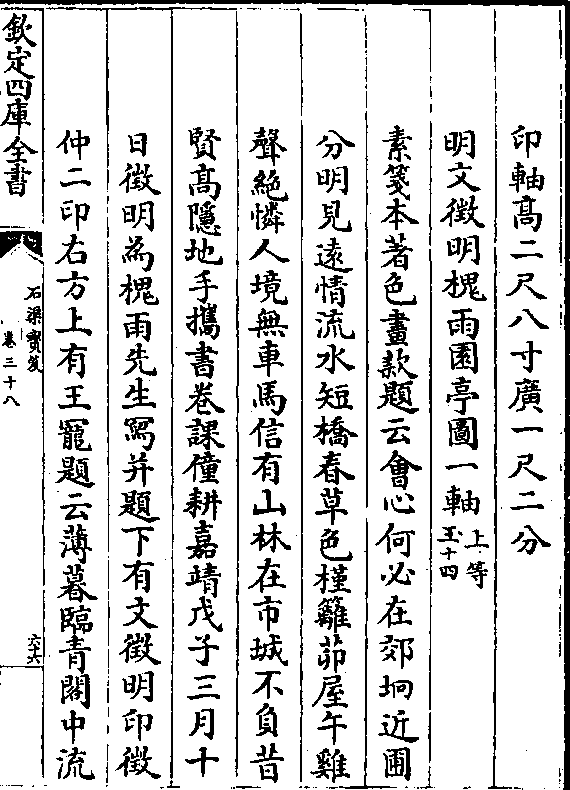 印軸髙二尺八寸廣一尺二分
明文徴明槐雨園亭圖一軸上等玉十四
素箋本著色畫款題云會心何必在郊坰近圃
分明見遠情流水短橋春草色槿籬茆屋午雞
聲絶憐人境無車馬信有山林在市城不負昔
賢髙隱地手攜書卷課僮耕嘉靖戊子三月十
日徴明為槐雨先生寫并題下有文徴明印徴
仲二印右方上有王寵題云薄暮臨青閣中流
欽定四庫全書
石渠寳笈
卷三十八
六十六